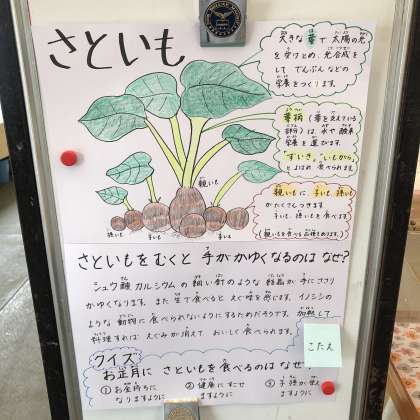 さといも
大きな葉で太陽の光
を受けとめ、光合成を
して でんぷんなどの
栄養をつくります。
葉柄(葉を支えている
部分)は、水や酸素
栄養を運びます。
「ずいき」「いもがら」
とよばれ 食べられます。
親いもに子いも、孫いも
がたくさんつきます。
子いも、孫いもを食べます。
(親いもを食べる品種もあります。)
親いも
孫いも 子いも 子いも 孫いも
さといもをむくと 手がかゆくなるのは なぜ?
シュウ酸カルシウムの細い針のような結晶が手にささり
かゆくなります。また生で食べると えぐ味を感じます。イノシシの
ような動物に食べられないようにするためだそうです。加熱して
料理すれば えぐみが消えて、おいしく食べられます。
こたえ
クイズ
お正月に さといもを食べるのは なぜ
①お金持ちに
なりますように
②健康にすご
せますように
③子孫が栄え
ますように